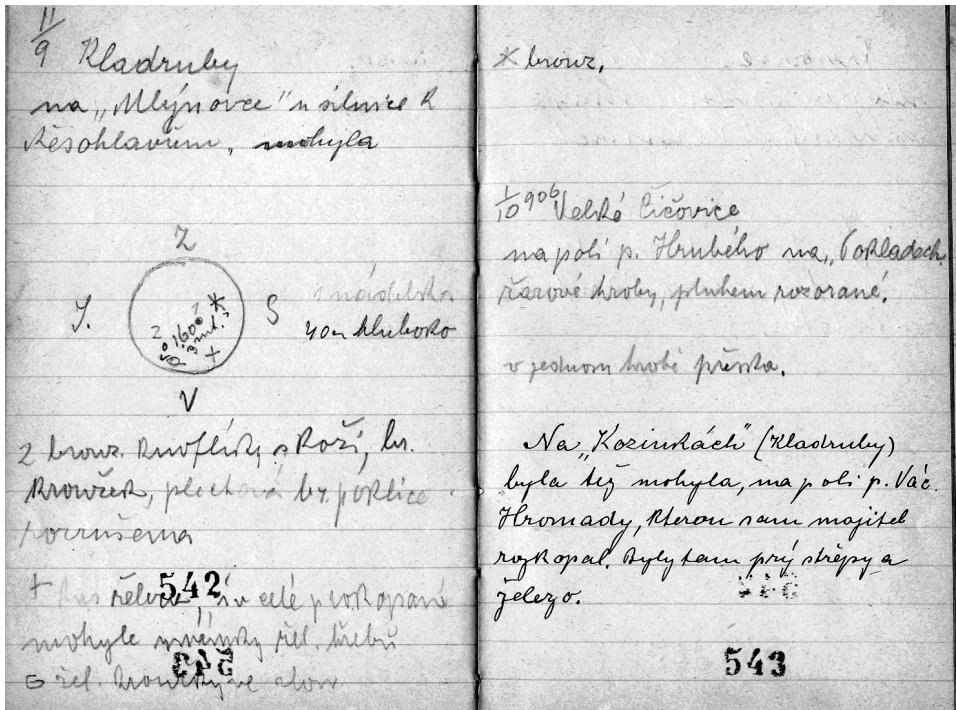 11/9 Kladruby
na „Mlýnovce" u silnice k
Těsohlavům, mohyla
Z
J.
S
40 cm hluboko
V
2 bronz. knoflíky s koží, br.
kroužek, plechová br. poklice
porušena
+
542
v celé prokopané
mohyle zlomky žel. hřebů
žel. kroužky ve zlom
* bronz.
1/10 906 Velké Čičovice
na poli p. Hrubého na „Pokladech.
žárové hroby, pluhem rozorané.
v jednom hrobě přeska.
Na „Kozinkách" (Kladruby)
byla též mohyla, na poli p. Vác.
Hromady, kterou sam majitel
rozkopal. Byly tam prý střepy a
železo.
543